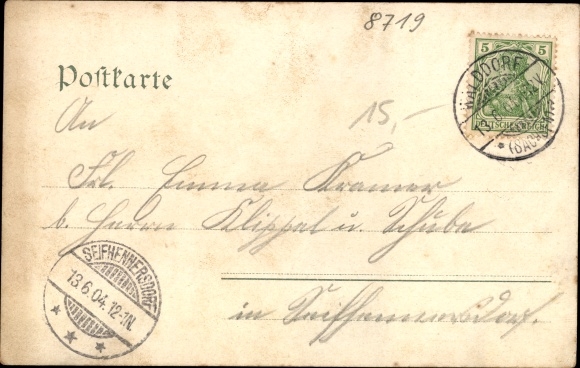 8719
5 5
DEUTSCHES REICH
WALDDORF
(SACHSEN)
Postkarte
An
15,-
Frl. Emma Kramer
b. Herrn Klippel u. Schube
SEIFHENNERSDORF
13.6.04. 12-1N.
in Seifhennersdorf.